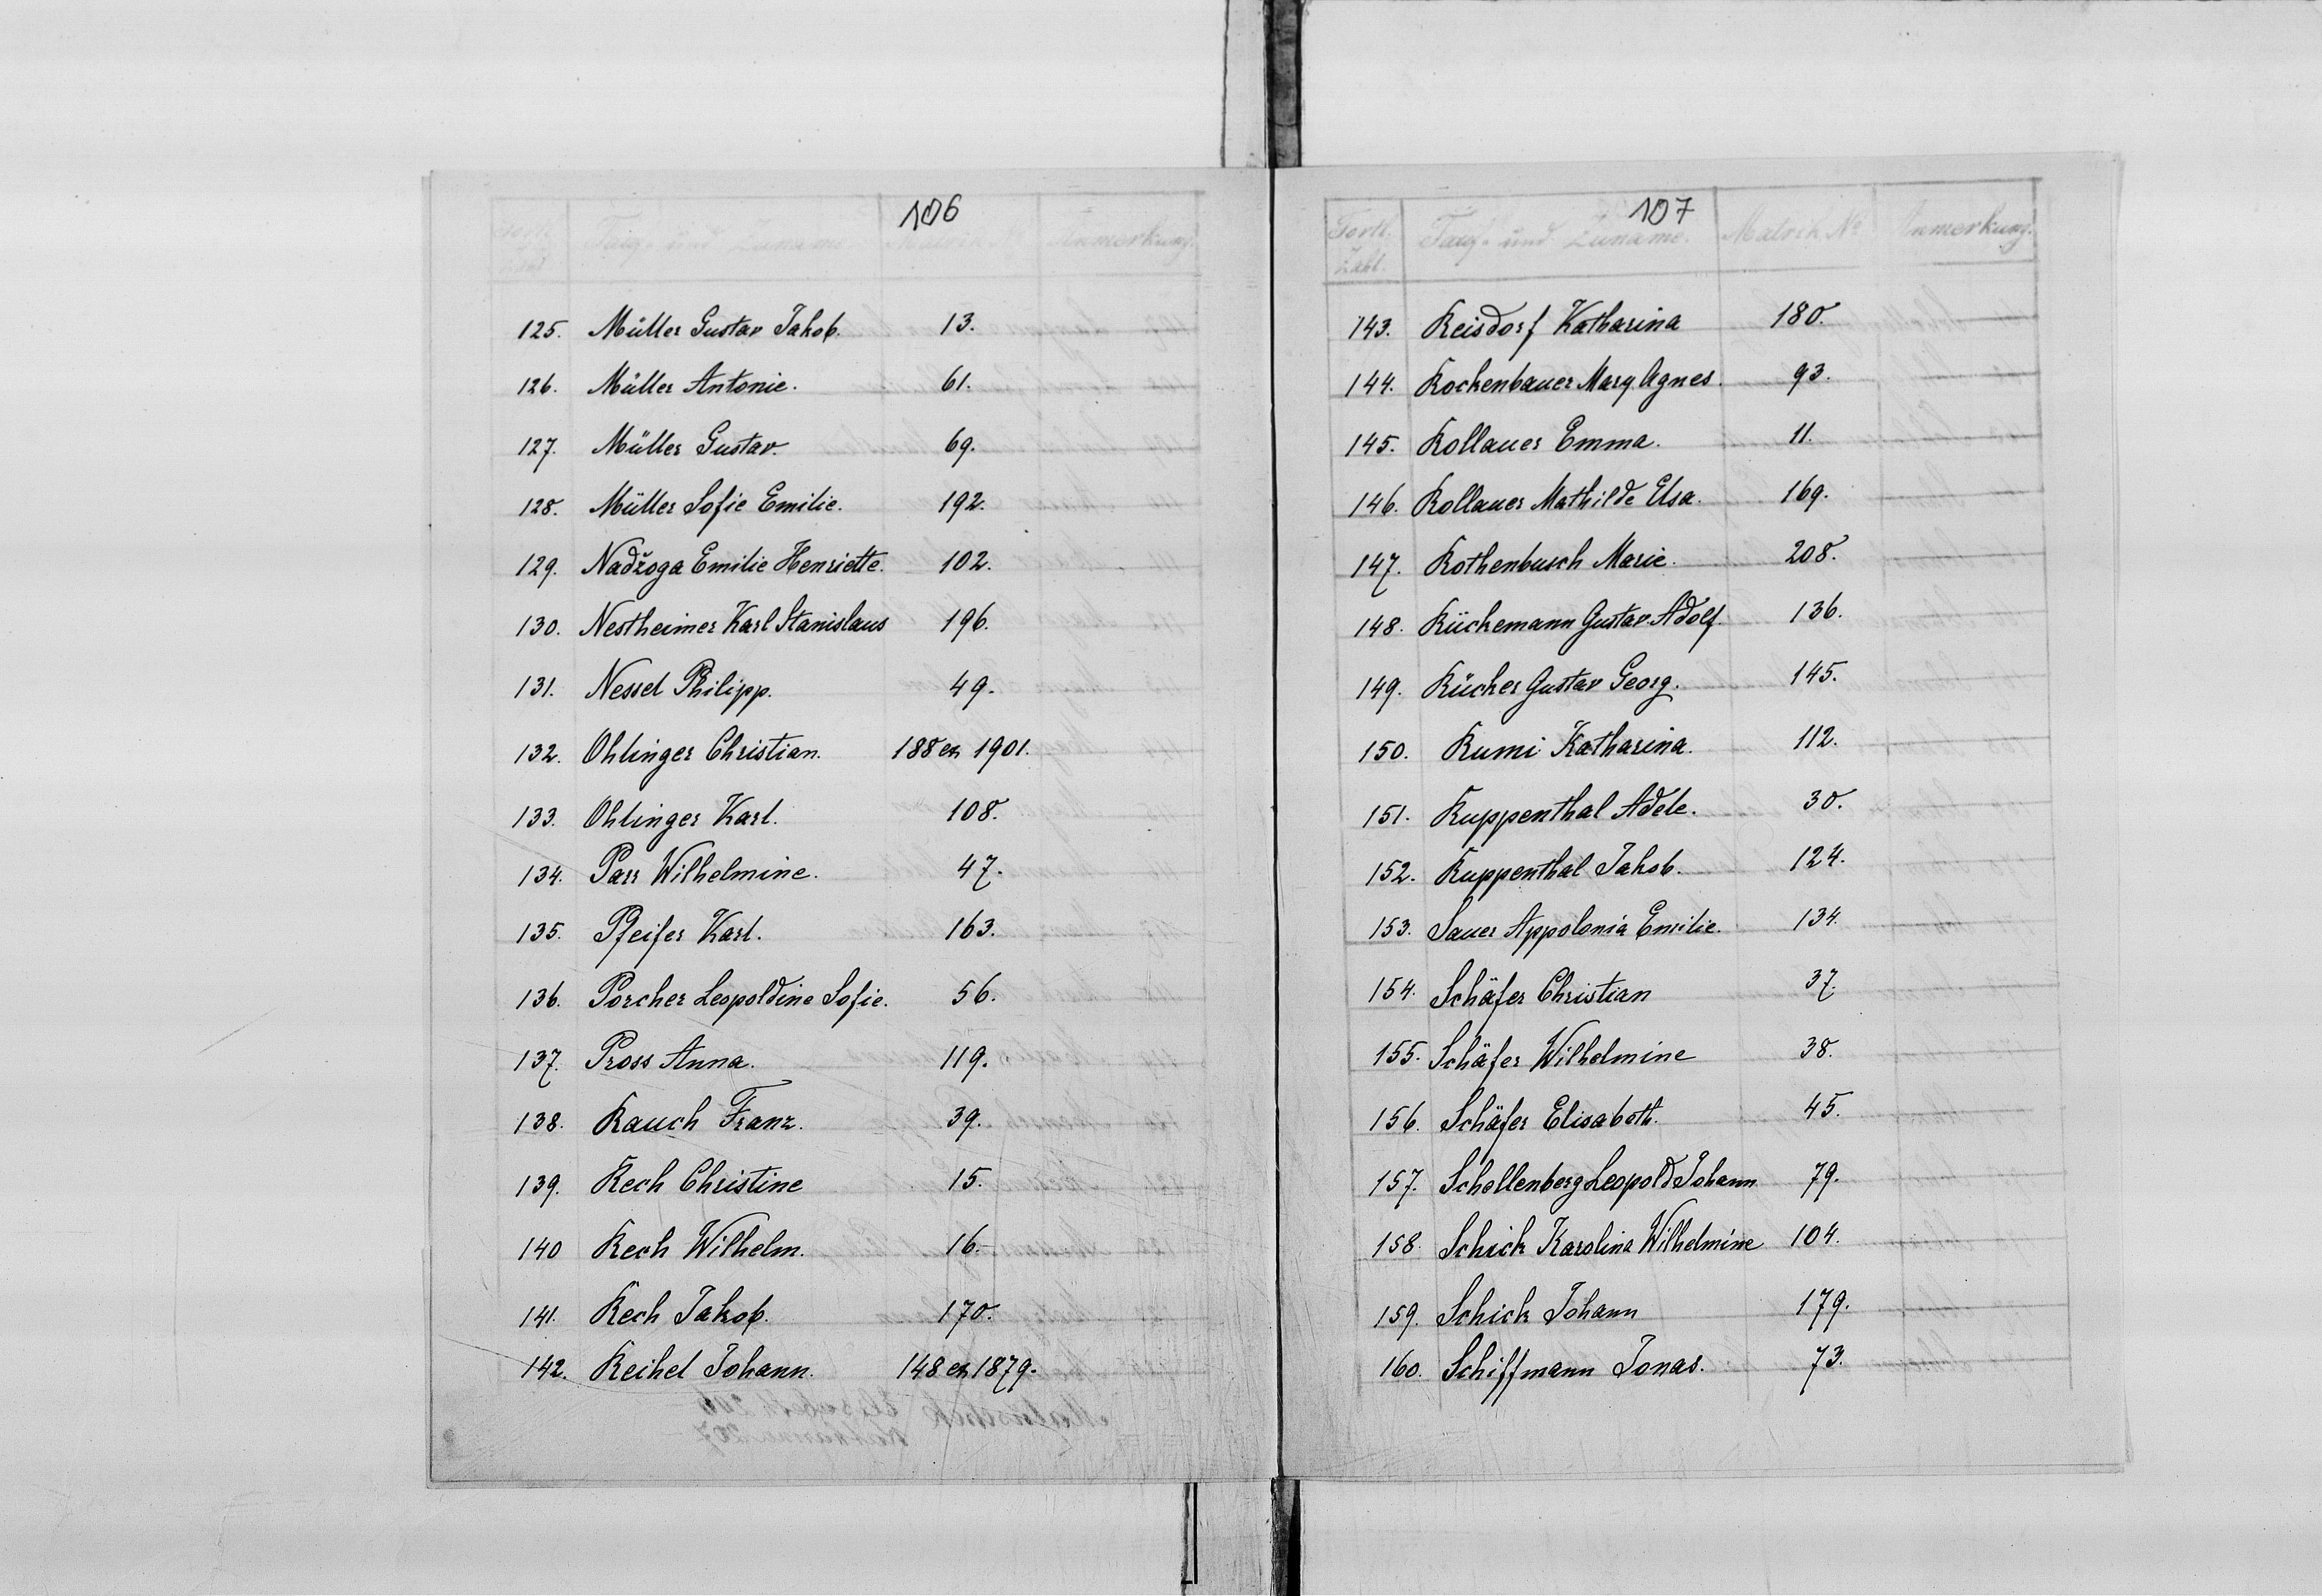 106
Anmerkung.
125. Müller Gustav Jakob. 13.
126. Müller Antonie. 61.
127. Müller Gustav. 69.
128. Müller Sofie Emilie. 192.
129. Nadžoga Emilie Henriette. 102.
130. Nestheimer Karl Stanislaus 196.
131. Nessel Philipp. 49.
132. Ohlinger Christian. 188 ex 1901.
133. Ohlinger Karl. 108.
134. Parr Wilhelmine. 47.
135. Pfeifer Karl. 163.
136. Porcher Leopoldine Sofie. 56.
137. Pross Anna. 119.
138. Rauch Franz. 39.
139. Rech Christine 15.
140 Rech Wilhelm. 16.
141. Rech Jakob. 170.
142. Reihel Johann. 148 ex 1879.
107
Fortl. Zahl. Tauf- und Zuname. Matrik No Anmerkung.
143. Reisdorf Katharina 180.
144. Rockenbauer Mary Agnes. 93.
145. Rollauer Emma. 11.
146. Rollauer Mathilde Elsa. 169.
147. Rothenbusch Marie. 208.
148. Rückemann Gustav Adolf. 136.
149. Rücker Gustav Georg. 145.
150. Rumi Katharina. 112.
151. Ruppenthal Adele. 30.
152. Ruppenthal Jakob. 124.
153. Sauer Appolonia Emilie. 134.
154. Schäfer Christian 37.
155. Schäfer Wilhelmine 38.
156. Schäfer Elisabeth. 45.
157. Schellenberg Leopold Johann 79.
158. Schick Karolina Wilhelmine 104.
159. Schick Johann 179.
160. Schiffmann Jonas. 73.